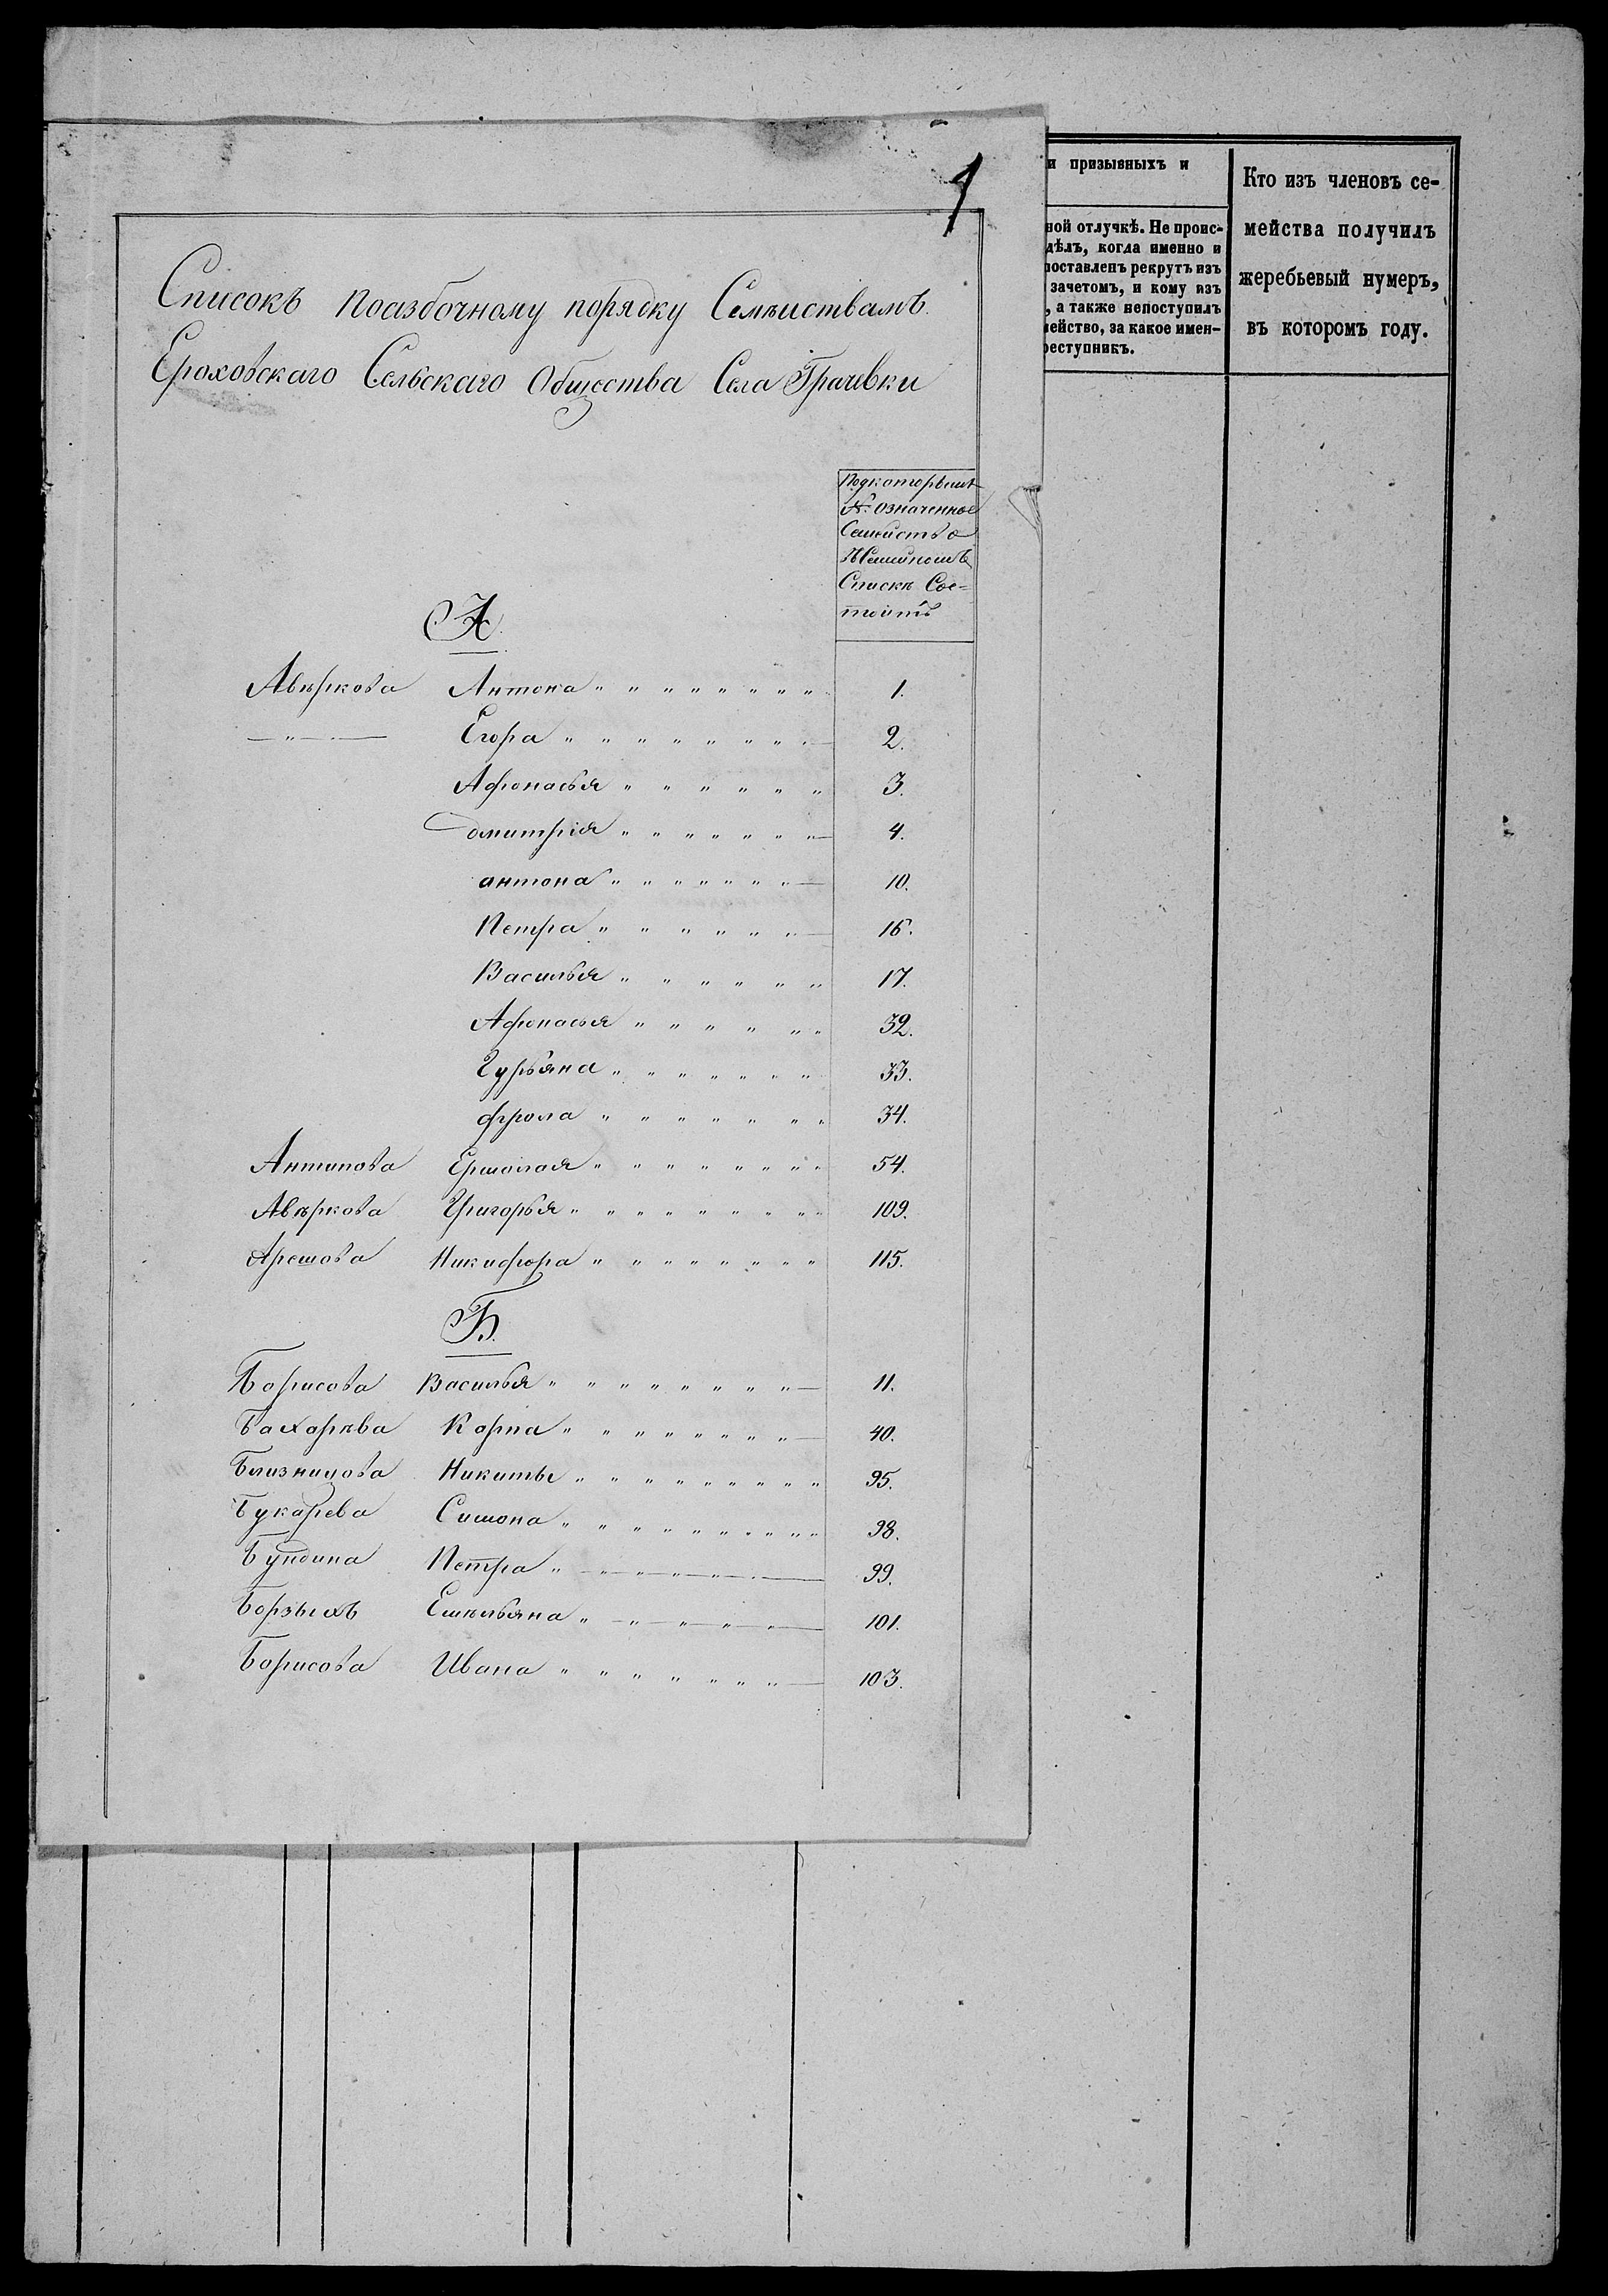 1
Списокъ поазбочному порядку Семѣиствамъ
Ероховскаго Сельскаго Общества Села Грачевки
Подкоторымъ
№ означенное
Семейство
Списке Сос-
тоитъ
А.
Авѣркова Антона " " " " " " " " 1.
— " — Егора " " " " " " " " 2.
Афонасья " " " " " " 3.
дмитрія " " " " " " " 4.
антона " " " " " " " 10.
Петра " " " " " " 16.
Василья " " " " " " 17.
Афонасья " " " " " " 32.
Гурьяна " " " " " " " 33.
фрола " " " " " " " 34.
Антипова Ермолая " " " " " " " " 54.
Авѣркова Григорья " " " " " " " " 109.
Арешова Никифора " " " " " " " " 115.
Б.
Борисова Василья " " " " " " " " 11.
Бахорѣва Корпа " " " " " " " " 40.
Близницова Никиты " " " " " " " " 95.
Букарева Симона " " " " " " " " " 98.
Бундина Петра " " " " " " 99.
Борзыхъ Емѣльяна " " " " " 101.
Борисова Ивана " " " " " " " 103.
и призывныхъ и
ной отлучкѣ. Не проис-
дѣлъ, когда именно и
поставленъ рекрутъ изъ
зачетомъ, и кому изъ
, а также непоступилъ
мейство, за какое имен-
реступникъ.
Кто изъ членовъ се-
мейства получилъ
жеребьевый нумеръ,
въ которомъ году.